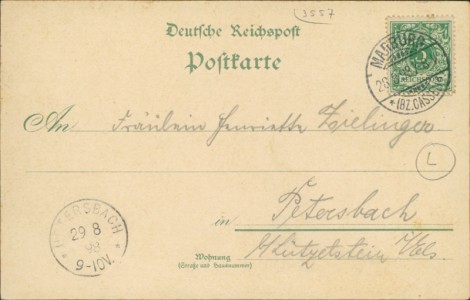 3557
Deutsche Reichspost
Postkarte
MARBURG
* (BZ. CASSEL)
An Fräulein Henriette Zielinger
L
in Petersbach
Wohnung
(Straße und Hausnummer)
PETERSBACH
29 8
98
9-10V.